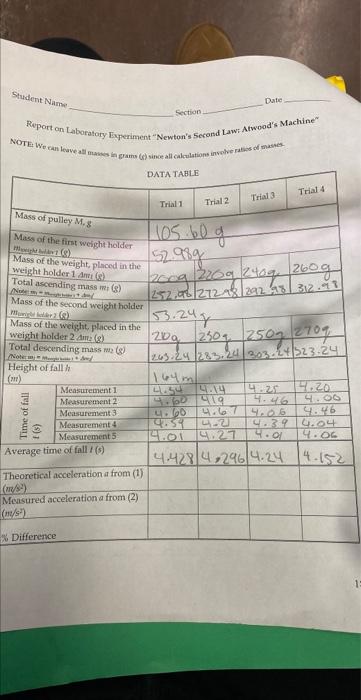 Student Name Section Date
Report on Laboratory Experiment "Newton's Second Law: Atwood's Machine"
NOTE: We can leave all masses in grams (g) since all calculations involve ratios of masses.
DATA TABLE
Trial 1 Trial 2 Trial 3 Trial 4
Mass of pulley M, g 105.60 g
Mass of the first weight holder
(g) 52.98g
Mass of the weight, placed in the
weight holder 1 Δm₁ (g) 200g 220g 240g 260g
Total ascending mass m₁ (g)
252.98 272.98 292.98 312.98
Mass of the second weight holder
(g) 53.24g
Mass of the weight, placed in the
weight holder 2 Δm₂ (g) 210g 230g 250g 270g
Total descending mass m₂ (g)
263.24 283.24 303.24 323.24
Height of fall h
(m) 164m
Time of fall
t (s)
Measurement 1 4.34 4.14 4.25 4.20
Measurement 2 4.60 419 4.46 4.00
Measurement 3 4.60 4.67 4.06 4.46
Measurement 4 4.59 4.21 4.39 4.04
Measurement 5 4.01 4.27 4.01 4.06
Average time of fall t (s) 4.428 4.296 4.24 4.152
Theoretical acceleration a from (1)
(m/s²)
Measured acceleration a from (2)
(m/s²)
% Difference